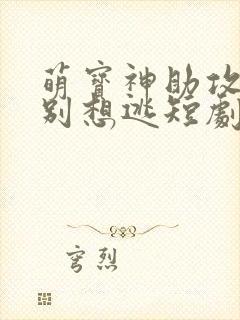 萌寶神助攻
別想逃短劇
穹烈